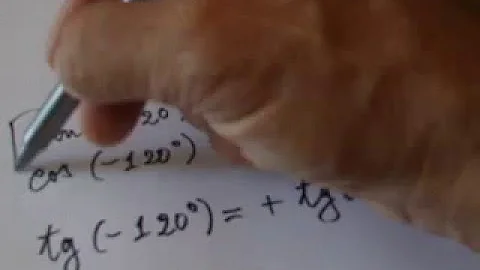 20
cos (-120°)
tg (-120°) = + tg